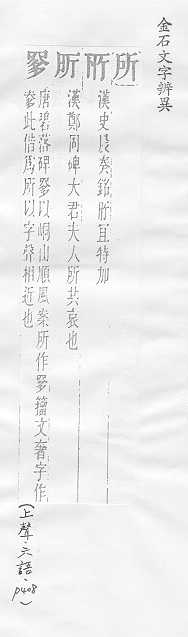 金石文字辨異
所
漢史晨奏銘所宜特加
漢鄭固碑大君夫人所共哀也
唐碧落碑以峒山順風案所作籀文奢字作
奓此借爲所以字聲相近也
(上聲·六語·p408)